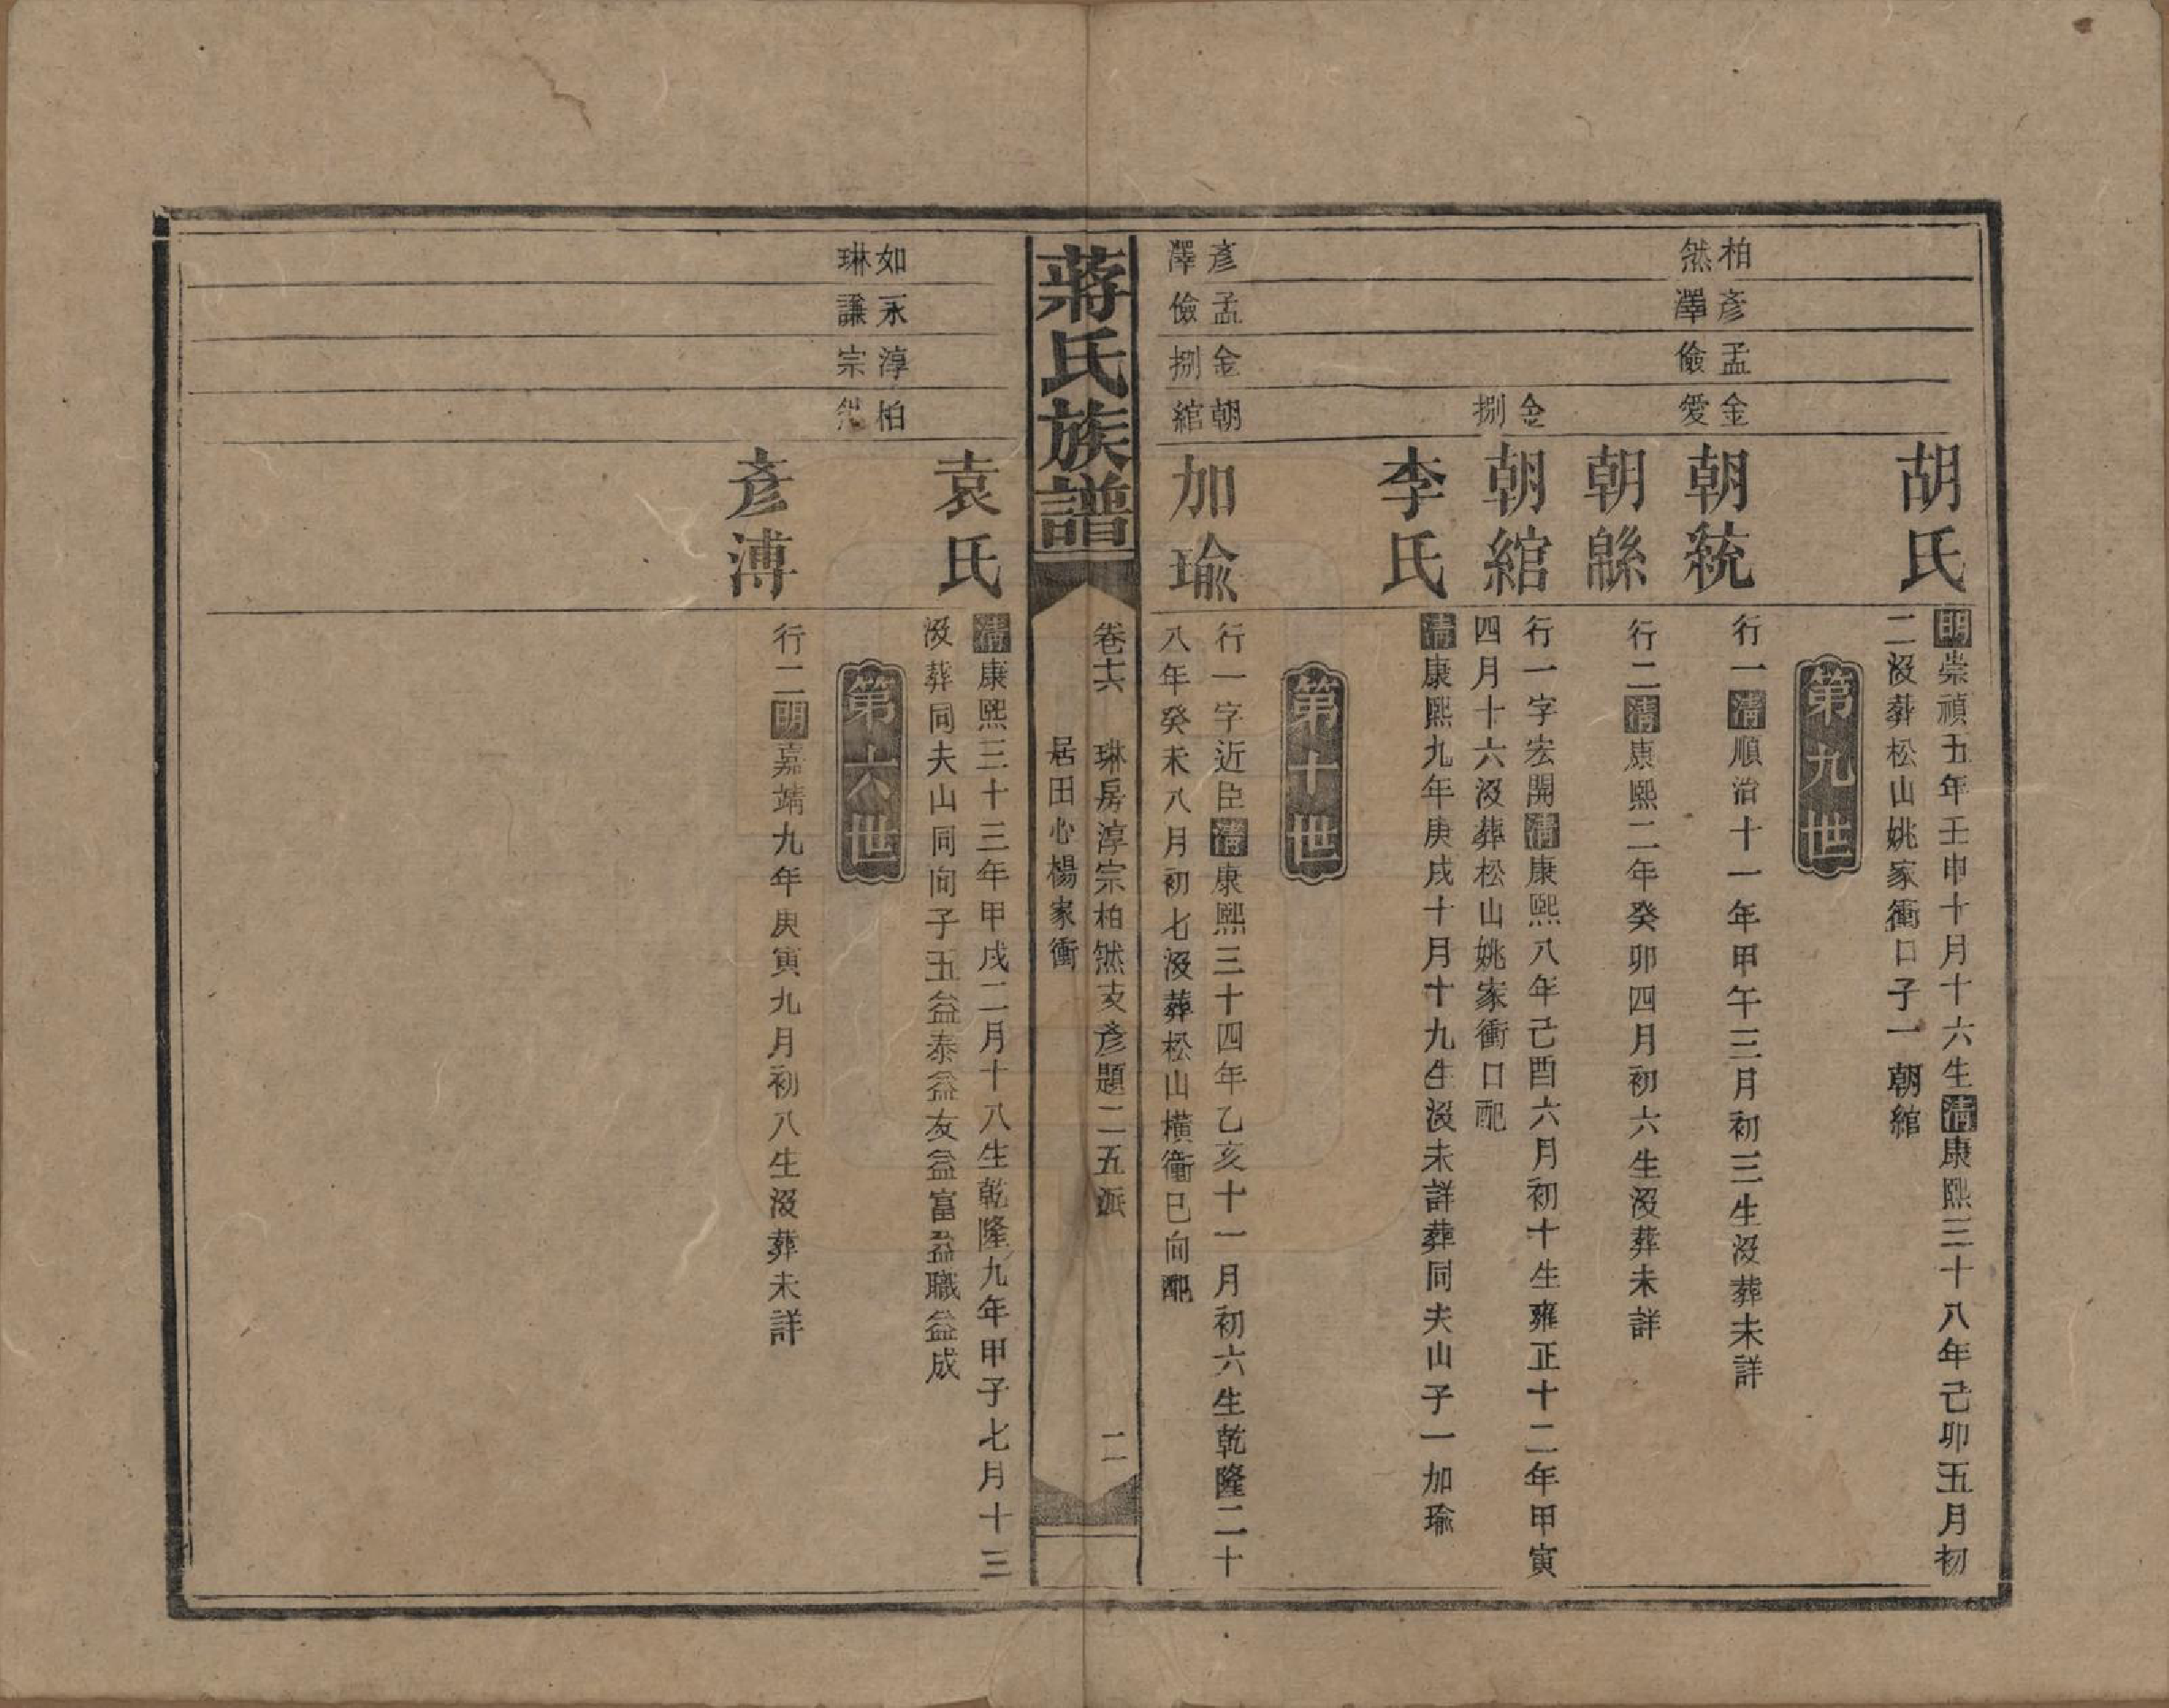 胡氏
明崇禎五年壬申十月十六生清康熙三十八年己卯五月初
二沒葬松山姚家衝口子一朝綰
第九世
柏然
彥澤
孟儉
金愛
朝統
行一清順治十一年甲午三月初三生沒葬未詳
朝緜
行二清康熙二年癸卯四月初六生沒葬未詳
金捌
朝綰
行一字宏開清康熙八年己酉六月初十生雍正十二年甲寅
四月十六沒葬松山姚家衝口配
李氏
清康熙九年庚戌十月十九生沒未詳葬同夫山子一加瑜
第十世
彥澤
孟儉
金捌
朝綰
加瑜
行一字近臣清康熙三十四年乙亥十一月初六生乾隆二十
八年癸未八月初七沒葬松山橫衝巳向配
蔣氏族譜
卷十六 琳房淳宗柏然支彥題二五派
居田心楊家衝
二
袁氏
清康熙三十三年甲戌二月十八生乾隆九年甲子七月十三
沒葬同夫山同向子五益泰益友益富益職益成
第六世
如琳
永謙
淳宗
柏
彥溥
行二明嘉靖九年庚寅九月初八生沒葬未詳